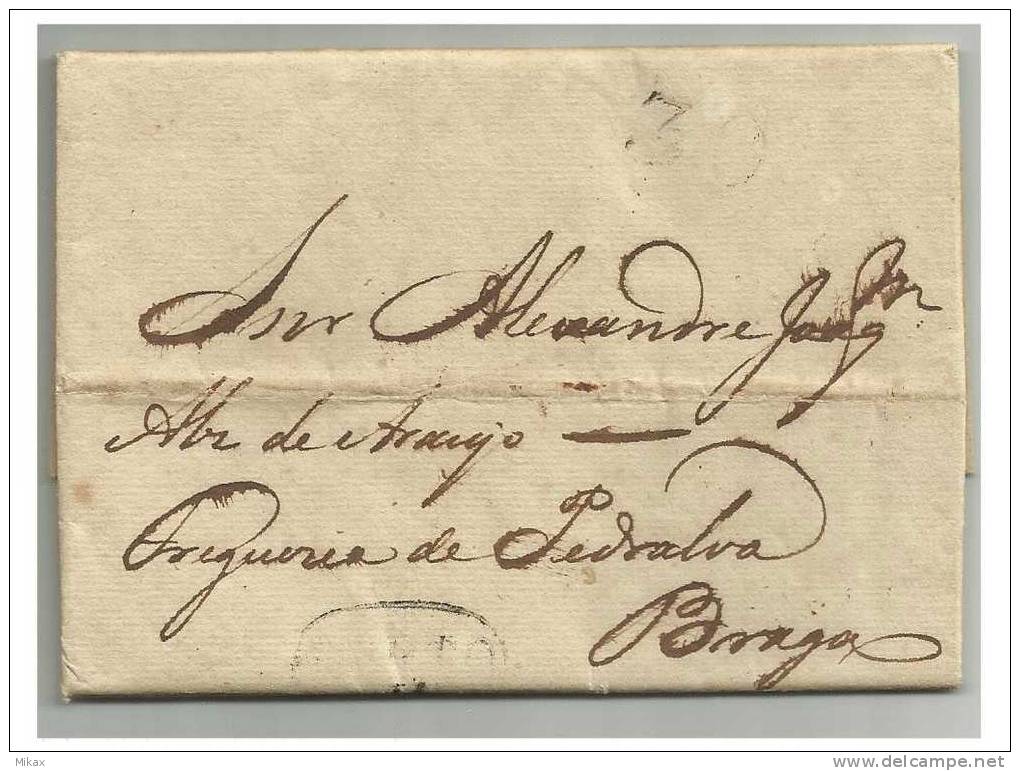 Snr Alexandre Joaqm
Abz de Araujo —
Freguezia de Pedralva
Braga
Mikax
www.delcampe.net